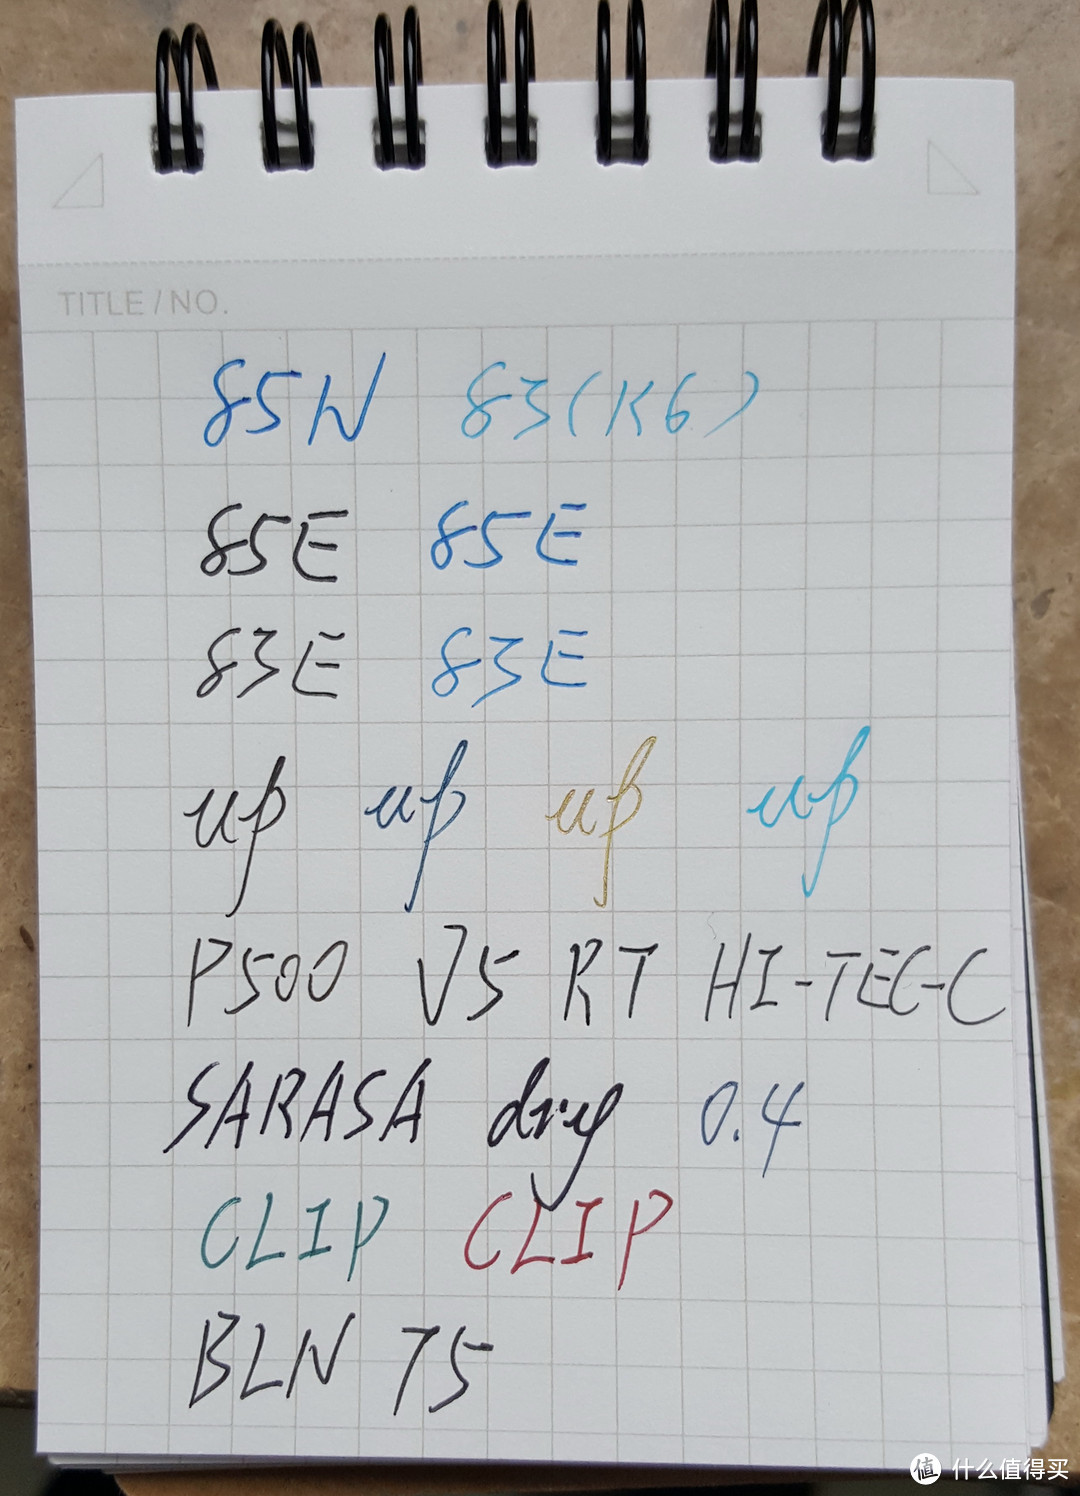 TITLE / NO.
85N 83(K6)
85E 85E
83E 83E
up up up up
P500 V5 RT HI-TEC-C
SARASA dry 0.4
CLIP CLIP
BLN 75
值 什么值得买